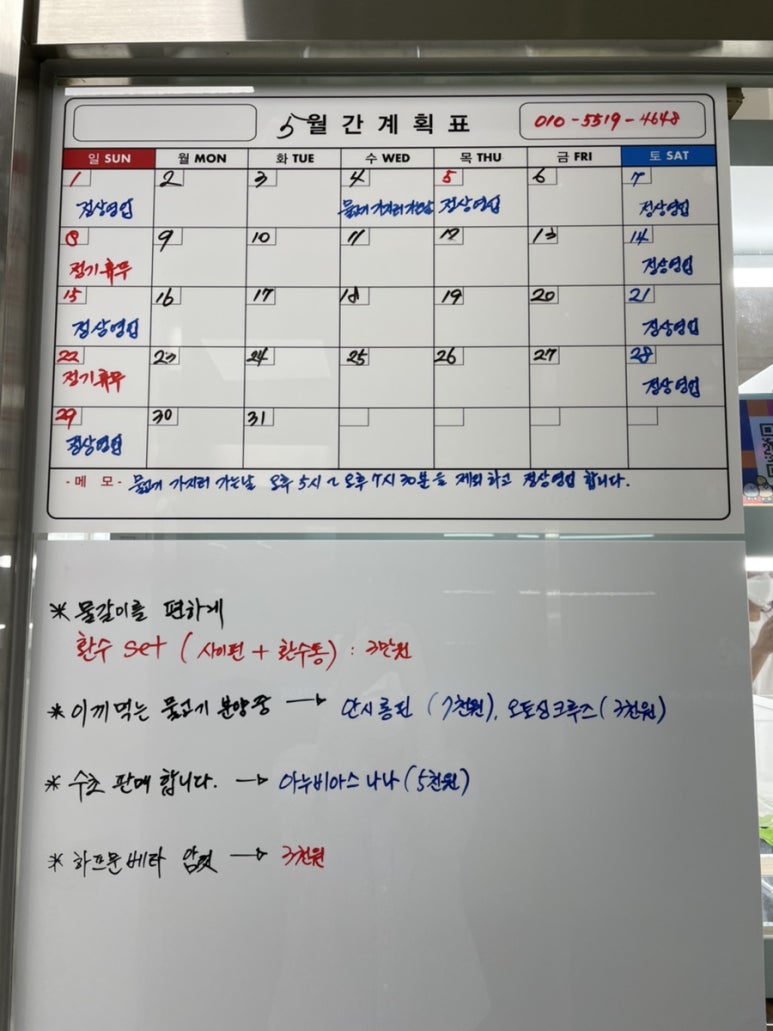 5 월 간 계 획 표
010-5519-4648
일 SUN 월 MON 화 TUE 수 WED 목 THU 금 FRI 토 SAT
1 2 3 4 5 6 7
정상영업 물고기 가지러 가는날 정상영업 정상영업
8 9 10 11 12 13 14
정기휴무 정상영업
15 16 17 18 19 20 21
정상영업 정상영업
22 23 24 25 26 27 28
정기휴무 정상영업
29 30 31
정상영업
- 메 모 - 물고기 가지러 가는날 오후 5시 ~ 오후 7시 30분을 제외하고 정상영업 합니다.
* 물갈이를 편하게
환수 set ( 사이펀 + 환수통 ) : 3만원
* 이끼먹는 물고기 분양중 → 안시롱핀 (7천원), 오토싱크루즈 (3천원)
* 수초 판매 합니다. → 아누비아스 나나 (5천원)
* 하프문베타 암컷 → 3천원